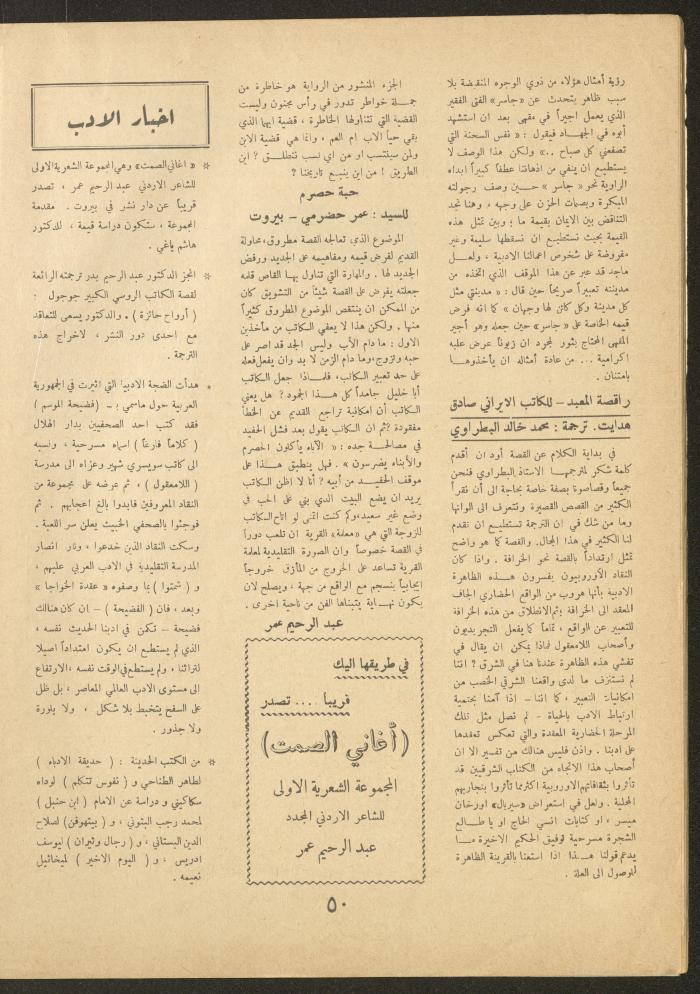 رؤية أمثال هؤلاء من ذوي الوجوه المنقبضة بلا
سبب ظاهر يتحدث عن «جاسر» الفتى الفقير
الذي يعمل اجيراً في مقهى بعد ان استشهد
أبوه في الجهاد فيقول : « نفس السحنة التي
تصفعني كل صباح .. » ولكن هذا الوصف لا
يستطيع ان ينفي من اذهاننا عطفاً كبيراً ابداه
الراوية نحو « جاسر » حين وصف رجولته
المبكرة وبصمات الحزن على وجهه ، وهنا نجد
التناقض بين الايمان بقيمة ما ؛ وبين تمثل هذه
القيمة بحيث نستطيع ان نسقطها سليمة وغير
مفروضة على شخوص اعمالنا الادبية ، ولعل
ماجد قد عبر عن هذا الموقف الذي اتخذه من
مدينته تعبيراً صريحاً حين قال : « مدينتي مثل
كل مدينة وكل كائن لها وجهان » كما انه فرض
قيمه الخاصة على « جاسر » حين جعله وهو أجير
المقهى المحتاج يثور لمجرد ان زبوناً عرض عليه
اكرامية ... من عادة أمثاله ان يأخذوها
بامتنان .
راقصة المعبد – للكاتب الايراني صادق
هدايت . ترجمة : محمد خالد البطراوي
في بداية الكلام عن القصة أود ان أقدم
كلمة شكر لمترجمها الاستاذ البطراوي فنحن
جميعاً وقصاصونا بصفة خاصة بحاجة الى أن نقرأ
الكثير من القصص القصيرة ونتعرف الى الوانها
وما من شك في ان الترجمة تستطيع ان تقدم
لنا الكثير في هذا المجال. والقصة كما هو واضح
تمثل ارتداداً بالقصة نحو الخرافة . واذا كان
النقاد الأوروبيون يفسرون هذه الظاهرة
الادبية بأنها هروب من الواقع الحضاري الجاف
المعقد الى الخرافة ثم الانطلاق من هذه الخرافة
للتعبير عن الواقع ، تماماً كما يفعل التجريديون
وأصحاب اللامعقول فماذا يمكن ان يقال في
تفشي هذه الظاهرة عندنا هنا في الشرق ؟ اننا
لم نستنزف ما لدى واقعنا الشرقي الخصب من
امكانيات التعبير ، كما اننا – اذا آمنا بحتمية
ارتباط الادب بالحياة – لم نصل مثل تلك
المرحلة الحضارية المعقدة والتي تعكس تعقدها
على ادبنا . واذن فليس هنالك من تفسير الا ان
أصحاب هذا الاتجاه من الكتاب الشرقيين قد
تأثروا بثقافاتهم الاوروبية اكثر مما تأثروا بتجاربهم
المحلية . ولعل في استعراض «سيريال» اورخان
ميسر ، او كتابات انسي الحاج او يا طالع
الشجرة مسرحية توفيق الحكيم الاخيرة ما
يدعم قولنا هذا اذا استعنا بالقرينة الظاهرة
للوصول الى العلة .
الجزء المنشور من الرواية هو خاطرة من
جملة خواطر تدور في رأس مجنون وليست
القضية التي تتناولها الخاطرة ، قضية ايهما الذي
بقي حياً الاب ام العم ، وانما هي قضية الابن
ولمن سينتسب او من اي نسب تنطلق ؟ اين
الطريق ! من اين ينبع تاريخنا ؟
حبة حصرم
للسيد : عمر حضرمي – بيروت
الموضوع الذي تعالجه القصة مطروق، محاولة
القديم لفرض قيمه ومفاهيمه على الجديد ورفض
الجديد لها . والمهارة التي تناول بها القاص قلمه
جعلته يفرض على القصة شيئاً من التشويق كان
من الممكن ان ينتقص الموضوع المطروق كثيراً
منها . ولكن هذا لا يعفي الكاتب من مأخذين
الاول : ما دام الأب وليس الجد قد اصر على
حبه وتزوج، وما دام الزمن لا بد وان يفعل فعله
على حد تعبير الكاتب، فلماذا جعل الكاتب
أبا خليل جامداً كل هذا الجمود ؟ هل يعني
الكاتب أن امكانية تراجع القديم عن الخطأ
مفقودة ؟ ثم ان الكاتب يقول بعد فشل الحفيد
في مصالحة جده : « الآباء يأكلون الحصرم
والأبناء يضرسون » . فهل ينطبق هذا على
موقف الحفيد من أبيه ? أنا لا اظن الكاتب
يريد ان يضع البيت الذي بني على الحب في
وضع غير سعيد، وكم كنت اتمنى لو اتاح الكاتب
للزوجة التي هي «معلمة» القرية ان تلعب دوراً
في القصة خصوصاً وان الصورة التقليدية لمعلمة
القرية تساعد على الخروج من المأزق خروجاً
إيجابياً ينسجم مع الواقع من جهة ، ويصلح لان
يكون نهاية يتبناها الفن من ناحية اخرى .
عبد الرحيم عمر
في طريقها اليك
قريباً .... تصدر
(أغاني الصمت)
المجموعة الشعرية الاولى
للشاعر الاردني المجدد
عبد الرحيم عمر
اخبار الادب
* « اغاني الصمت » وهي المجموعة الشعرية الاولى
للشاعر الاردني عبد الرحيم عمر ، تصدر
قريباً عن دار نشر في بيروت . مقدمة
المجموعة ، ستكون دراسة قيمة ، للدكتور
هاشم ياغي .
* انجز الدكتور عبد الرحيم بدر ترجمته الرائعة
لقصة الكاتب الروسي الكبير جوجول :
( أرواح حائرة ) . والدكتور يسعى للتعاقد
مع احدى دور النشر ، لاخراج هذه
الترجمة .
* هدأت الضجة الادبية التي اثيرت في الجمهورية
العربية حول ماسمي بـ – (فضيحة الموسم )
فقد كتب احد الصحفيين بدار الهلال
( كلاماً فارغاً ) اسماه مسرحية ، ونسبه
الى كاتب سويسري شهير وعزاه الى مدرسة
( اللامعقول ) ، ثم عرضه على مجموعة من
النقاد المعروفين فابدوا بالغ اعجابهم . ثم
فوجئوا بالصحفي الخبيث يعلن سر اللعبة .
وسكت النقاد الذين خدعوا ، وثار انصار
المدرسة التقليدية في الادب العربي عليهم ،
و ( شمتوا ) بما وصفوه « عقدة الخواجا »
وبعد ، فان ( الفضيحة ) – ان كان هنالك
فضيحة – تكمن في ادبنا الحديث نفسه ،
الذي لم يستطع ان يكون امتداداً اصيلا
لتراثنا ، ولم يستطع في الوقت نفسه ، الارتفاع
الى مستوى الادب العالمي المعاصر ، بل ظل
على السفح يتخبط بلا شكل ، ولا بلورة
ولا جذور .
* من الكتب الحديثة : ( حديقة الادباء )
لطاهر الطناحي و ( نفوس تتكلم ) لوداد
سكاكيني و دراسة عن الامام ( ابن حنبل )
لمحمد رجب البتوني ، و ( بيتهوفن ) لصلاح
الدين البستاني ، و ( رجال وثيران ) ليوسف
ادريس ، و ( اليوم الاخير ) لميخائيل
نعيمه .
٥٠